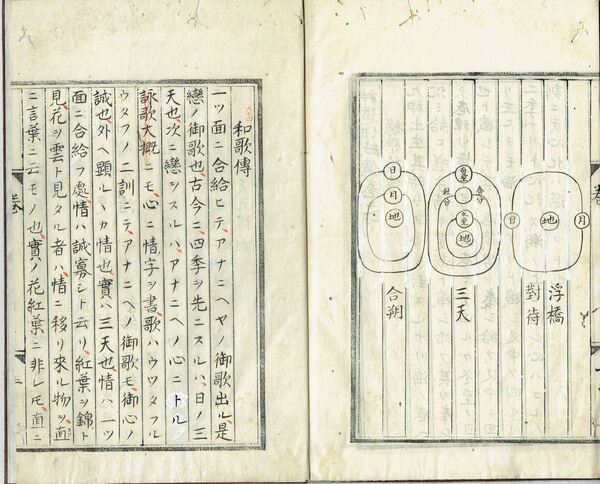 浮橋
對待
月
地
日
三天
夏至
春分
秋分
冬至
地
合朔
日
月
地
和歌傳
一ツ面ニ合給ヒテ、アナニヘヤノ御歌出ル、是
戀ノ御歌也、古今ニ、四季ヲ先ニスルハ、日ノ三
天也、次ニ戀ヲスルハ、アナニヘノ心ニトル、
詠歌大概ニモ、心ニ情字ヲ書、歌ハウツタフル
ウタフノ二訓ニテ、アナニヘノ御歌モ、御心ノ
誠也、外ヘ顯ルヽカ情也、實ハ三天也、情ハ一ツ
面ニ合給フ處、情ハ誠寡シト云リ、紅葉ヲ錦ト
見、花ヲ雲ト見タル者ハ、情ニ移リ來ル物ヲ、面
ニ言葉ニ云モノ也、實ノ花紅葉ニ非レモ、面ニ